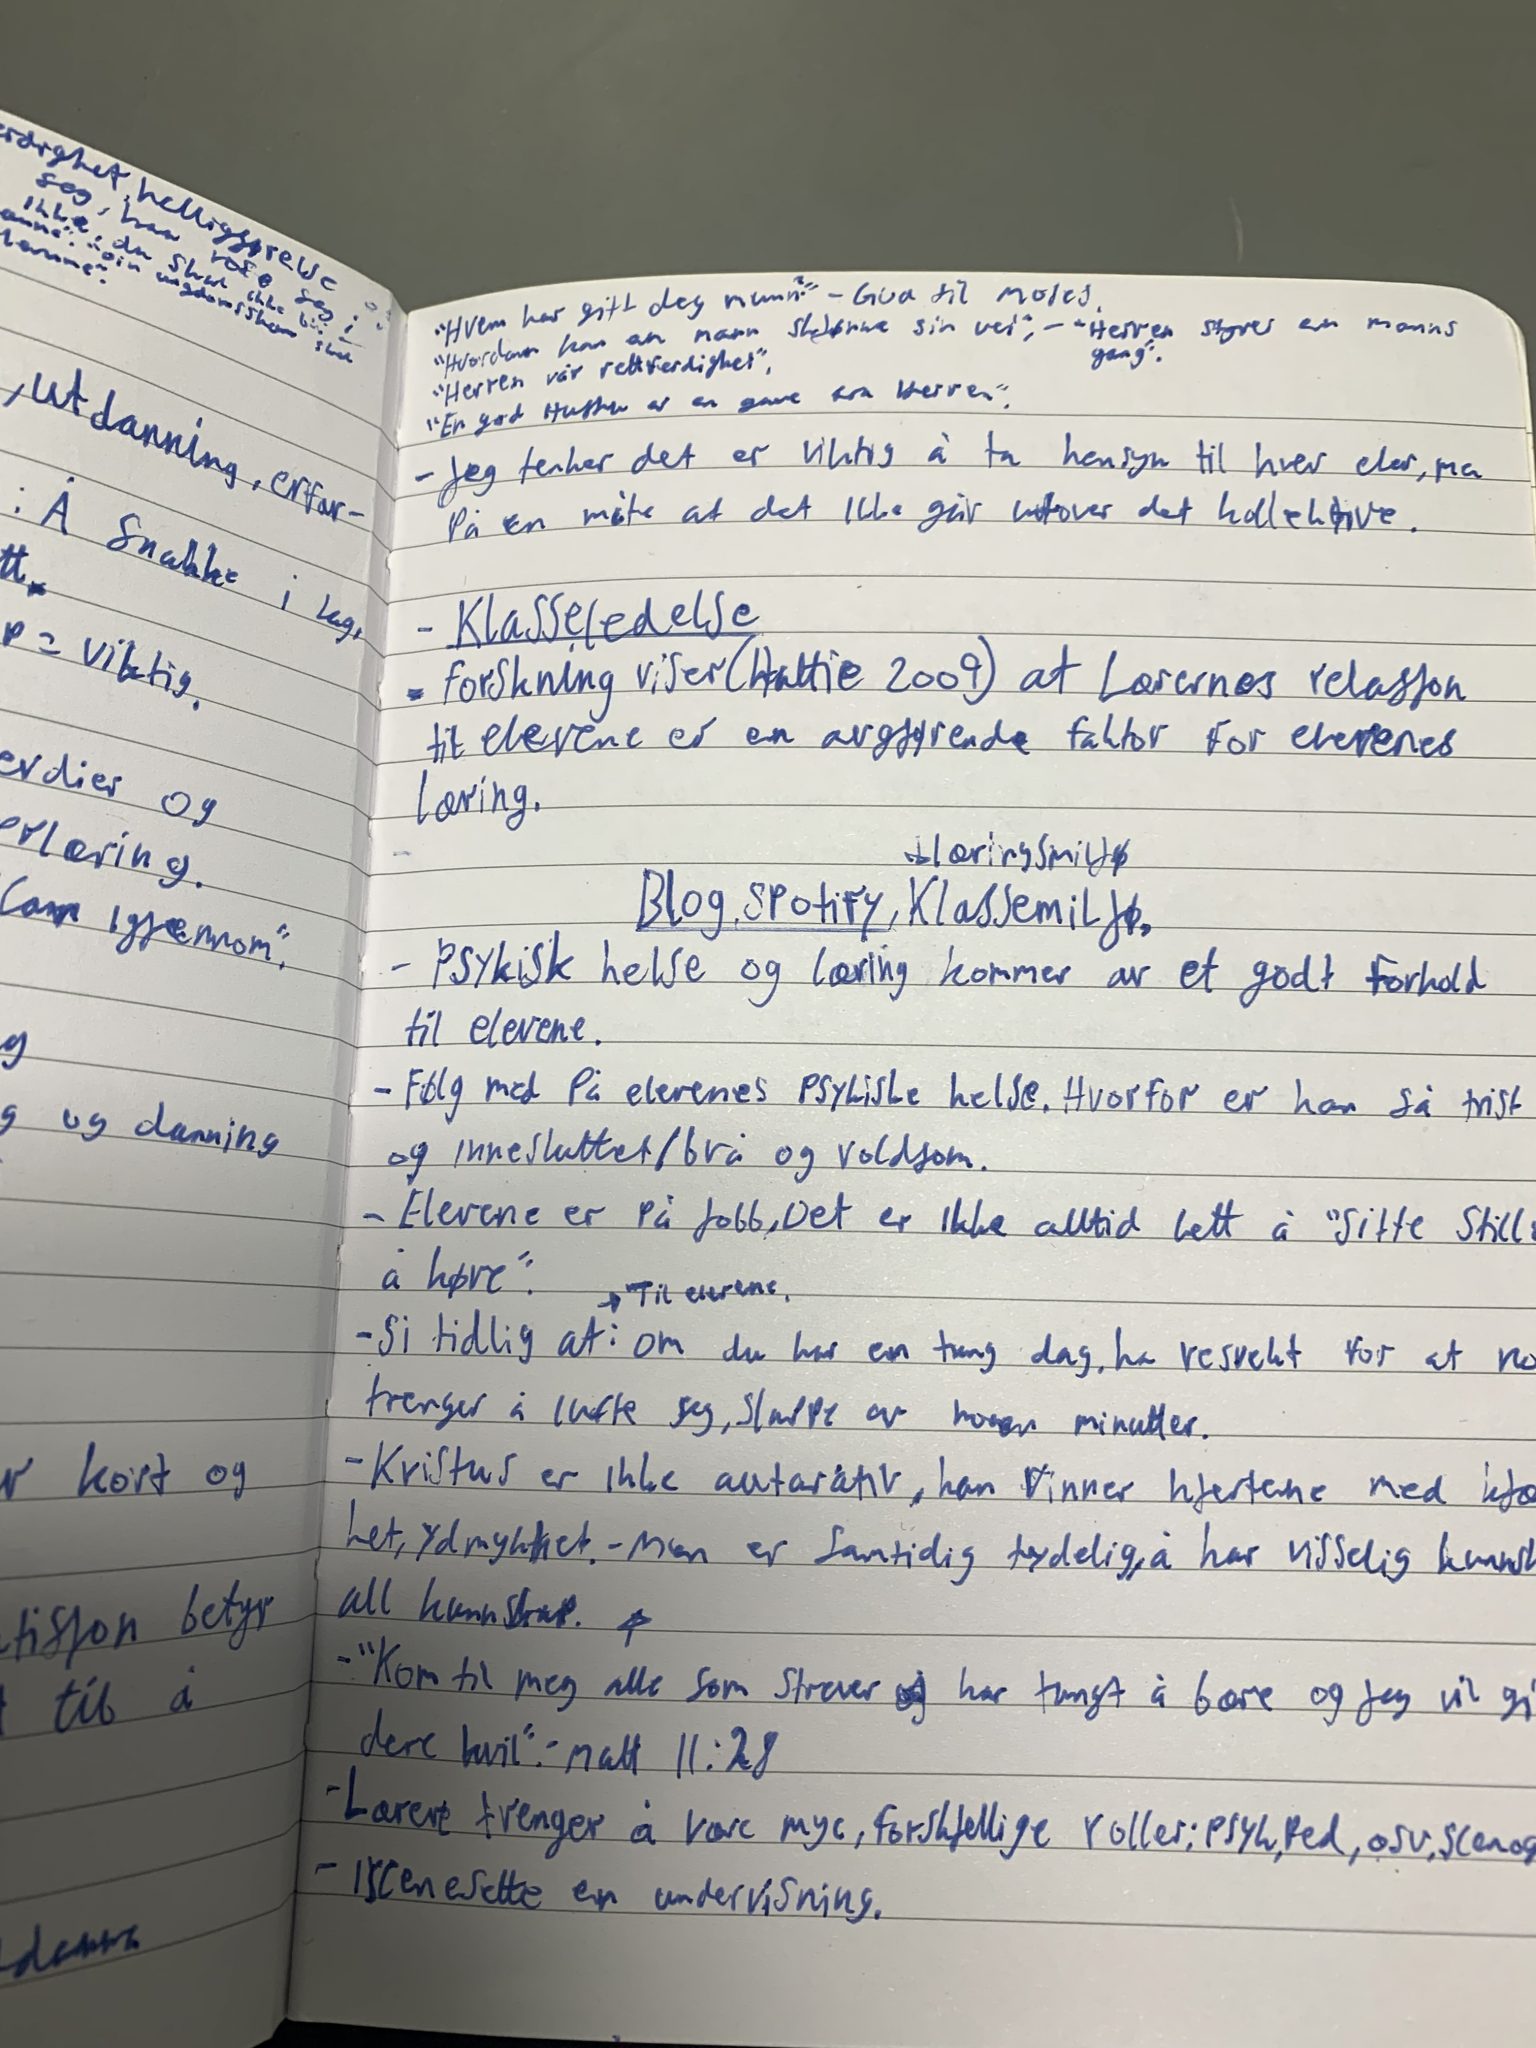 helliggjørelse
seg, han rose seg i
ikke, du skal ikke bli
din ungdoms skam skal
, utdanning, erfar-
: Å snakke i lag,
tt.
P = viktig.
erdier og
erlæring.
igjennom".
g
g og danning
r kort og
tisjon betyr
t til å
"Hvem har gitt deg munn?" - Gud til Moses.
"Hvordan kan en mann sin vei", - "Herren styrer en manns
gang".
"Herren vår rettferdighet",
"En god er en gave fra Herren".
- Jeg tenker det er viktig å ta hensyn til hver elev, men
på en måte at det ikke går utover det kollektive.
- Klasseledelse
- Forskning viser (Hattie 2009) at Lærernes relasjon
til elevene er en avgjørende faktor for elevenes
læring.
↓ læringsmiljø
Blog, spotify, Klassemiljø.
- Psykisk helse og læring kommer av et godt forhold
til elevene.
- Følg med på elevenes psykiske helse. Hvorfor er han så trist
og innesluttet/brå og voldsom.
- Elevene er på jobb, Det er ikke alltid lett å "sitte stille
å høre".
→ Til elevene.
- Si tidlig at: om du har en tung dag, ha respekt for at no
trenger å lufte seg, slappe av noen minutter.
- Kristus er ikke autorativ, han vinner hjertene med kjæ
het, ydmykhet. - Men er samtidig tydelig, å har visselig kunnsk
all kunnskap.
- "Kom til meg alle som strever og har tungt å bære og jeg vil gi
dere hvil". - Matt 11:28
- Lærere trenger å være mye, forskjellige roller: psyk, ped, osv, scenog
- Iscenesette en undervisning.